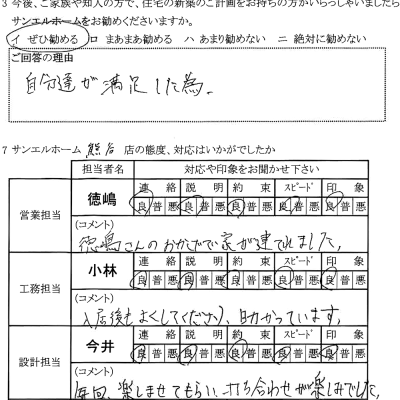 3 今後、ご家族や知人の方で、住宅の新築のご計画をお持ちの方がいらっしゃいましたら
サンエルホームをお勧めくださいますか。
イ ぜひ勧める ロ まあまあ勧める ハ あまり勧めない ニ 絶対に勧めない
ご回答の理由
自分達が満足した為。
7 サンエルホーム 熊谷 店の態度、対応はいかがでしたか
担当者名 対応や印象をお聞かせ下さい
営業担当 徳嶋
連絡 説明 約束 スピード 印象
良 普 悪 良 普 悪 良 普 悪 良 普 悪 良 普 悪
(コメント)
徳嶋さんのおかげで家が建てれました。
工務担当 小林
連絡 説明 約束 スピード 印象
良 普 悪 良 普 悪 良 普 悪 良 普 悪 良 普 悪
(コメント)
入居後もよくしてくださり、助かっています。
設計担当 今井
連絡 説明 約束 スピード 印象
良 普 悪 良 普 悪 良 普 悪 良 普 悪 良 普 悪
(コメント)
毎回、楽しませてもらい、打ち合わせが楽しみでした。